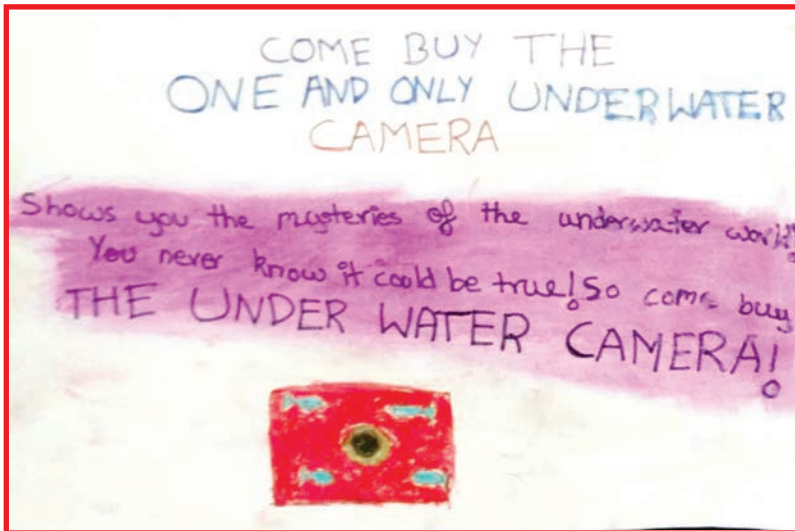 COME BUY THE
ONE AND ONLY UNDERWATER
CAMERA
Shows you the mysteries of the underwater world!
You never know it could be true! So come buy
THE UNDER WATER CAMERA!